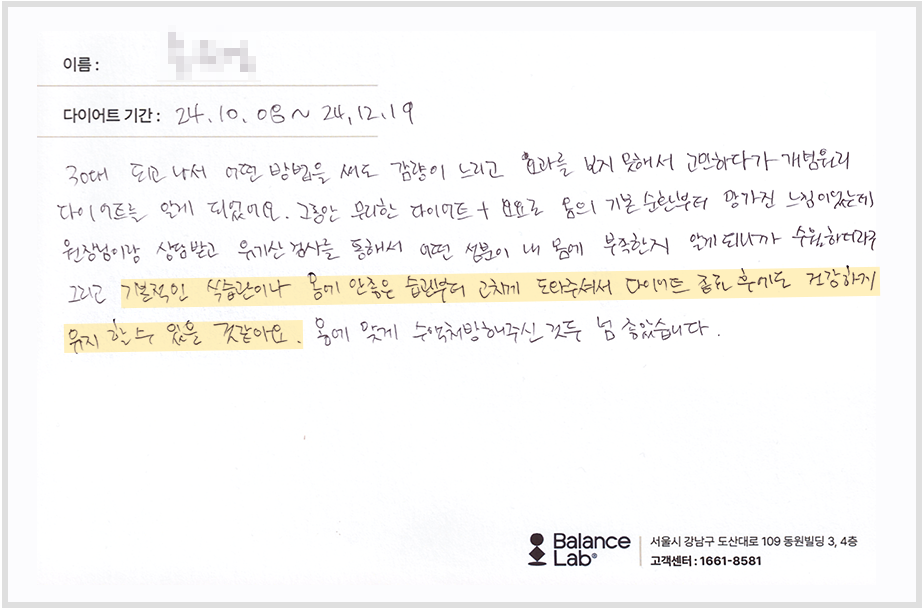 이름 :
다이어트 기간 : 24.10.08 ~ 24.12.19
30대 되고 나서 어떤 방법을 써도 감량이 느리고 효과를 보지 못해서 고민하다가 개범원리
다이어트를 알게 되었어요. 그동안 무리한 다이어트 + 요요로 몸의 기본 순환부터 망가진 느낌이었는데
원장님이랑 상담받고 유기산 검사를 통해서 어떤 성분이 내 몸에 부족한지 알게되니까 수월하더라구
그리고 기본적인 식습관이나 몸에 안좋은 습관부터 고치게 도와주셔서 다이어트 종료 후에도 건강하게
유지 할 수 있을 것같아요. 몸에 맞게 수액처방해주신 것두 넘 좋았습니다.
Balance Lab®
서울시 강남구 도산대로 109 동원빌딩 3, 4층
고객센터 : 1661-8581